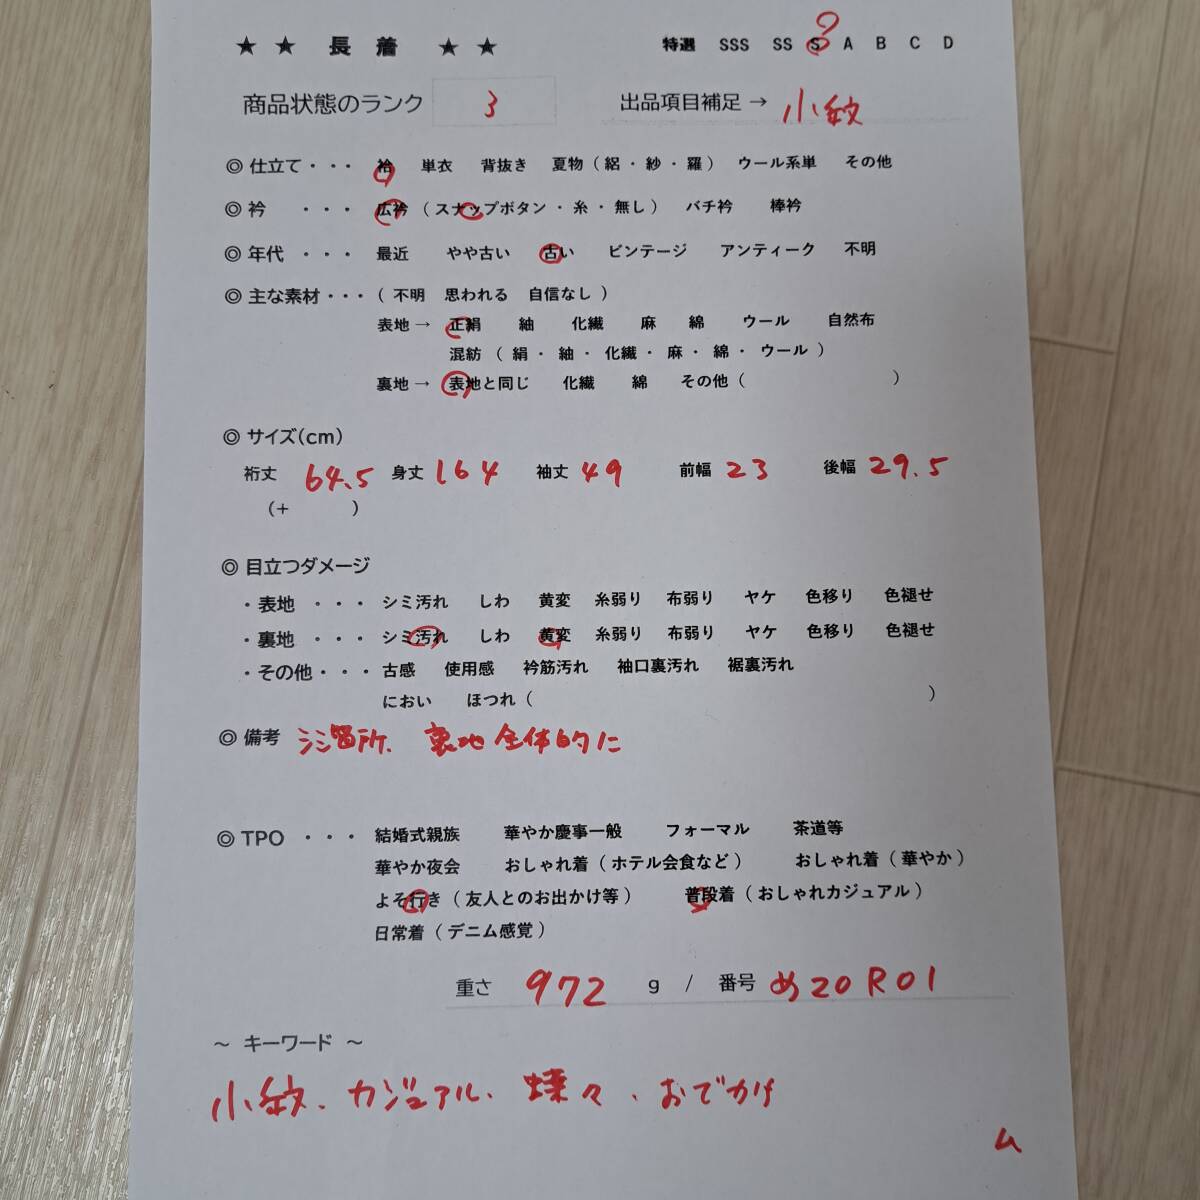 ★ ★ 長 着 ★ ★ 特選 SSS SS S A B C D
商品状態のランク 3 出品項目補足 → 小紋
◎ 仕立て ・・・ 袷 単衣 背抜き 夏物 ( 絽 ・ 紗 ・ 羅 ) ウール系単 その他
◎ 衿 ・・・ 広衿 ( スナップボタン ・ 糸 ・ 無し ) バチ衿 棒衿
◎ 年代 ・・・ 最近 やや古い 古い ビンテージ アンティーク 不明
◎ 主な素材 ・・・ ( 不明 思われる 自信なし )
表地 → 正絹 紬 化繊 麻 綿 ウール 自然布
混紡 ( 絹 ・ 紬 ・ 化繊 ・ 麻 ・ 綿 ・ ウール )
裏地 → 表地と同じ 化繊 綿 その他 ( )
◎ サイズ(cm)
裄丈 64.5 身丈 164 袖丈 49 前幅 23 後幅 29.5
(+ )
◎ 目立つダメージ
・表地 ・・・ シミ汚れ しわ 黄変 糸弱り 布弱り ヤケ 色移り 色褪せ
・裏地 ・・・ シミ汚れ しわ 黄変 糸弱り 布弱り ヤケ 色移り 色褪せ
・その他 ・・・ 古感 使用感 衿筋汚れ 袖口裏汚れ 裾裏汚れ
におい ほつれ ( )
◎ 備考 箇所、裏地全体的に
◎ TPO ・・・ 結婚式親族 華やか慶事一般 フォーマル 茶道等
華やか夜会 おしゃれ着 ( ホテル会食など ) おしゃれ着 ( 華やか )
よそ行き ( 友人とのお出かけ等 ) 普段着 ( おしゃれカジュアル )
日常着 ( デニム感覚 )
重さ 972 g / 番号 め20R01
～ キーワード ～
小紋、カジュアル、蝶々、おでかけ
ム